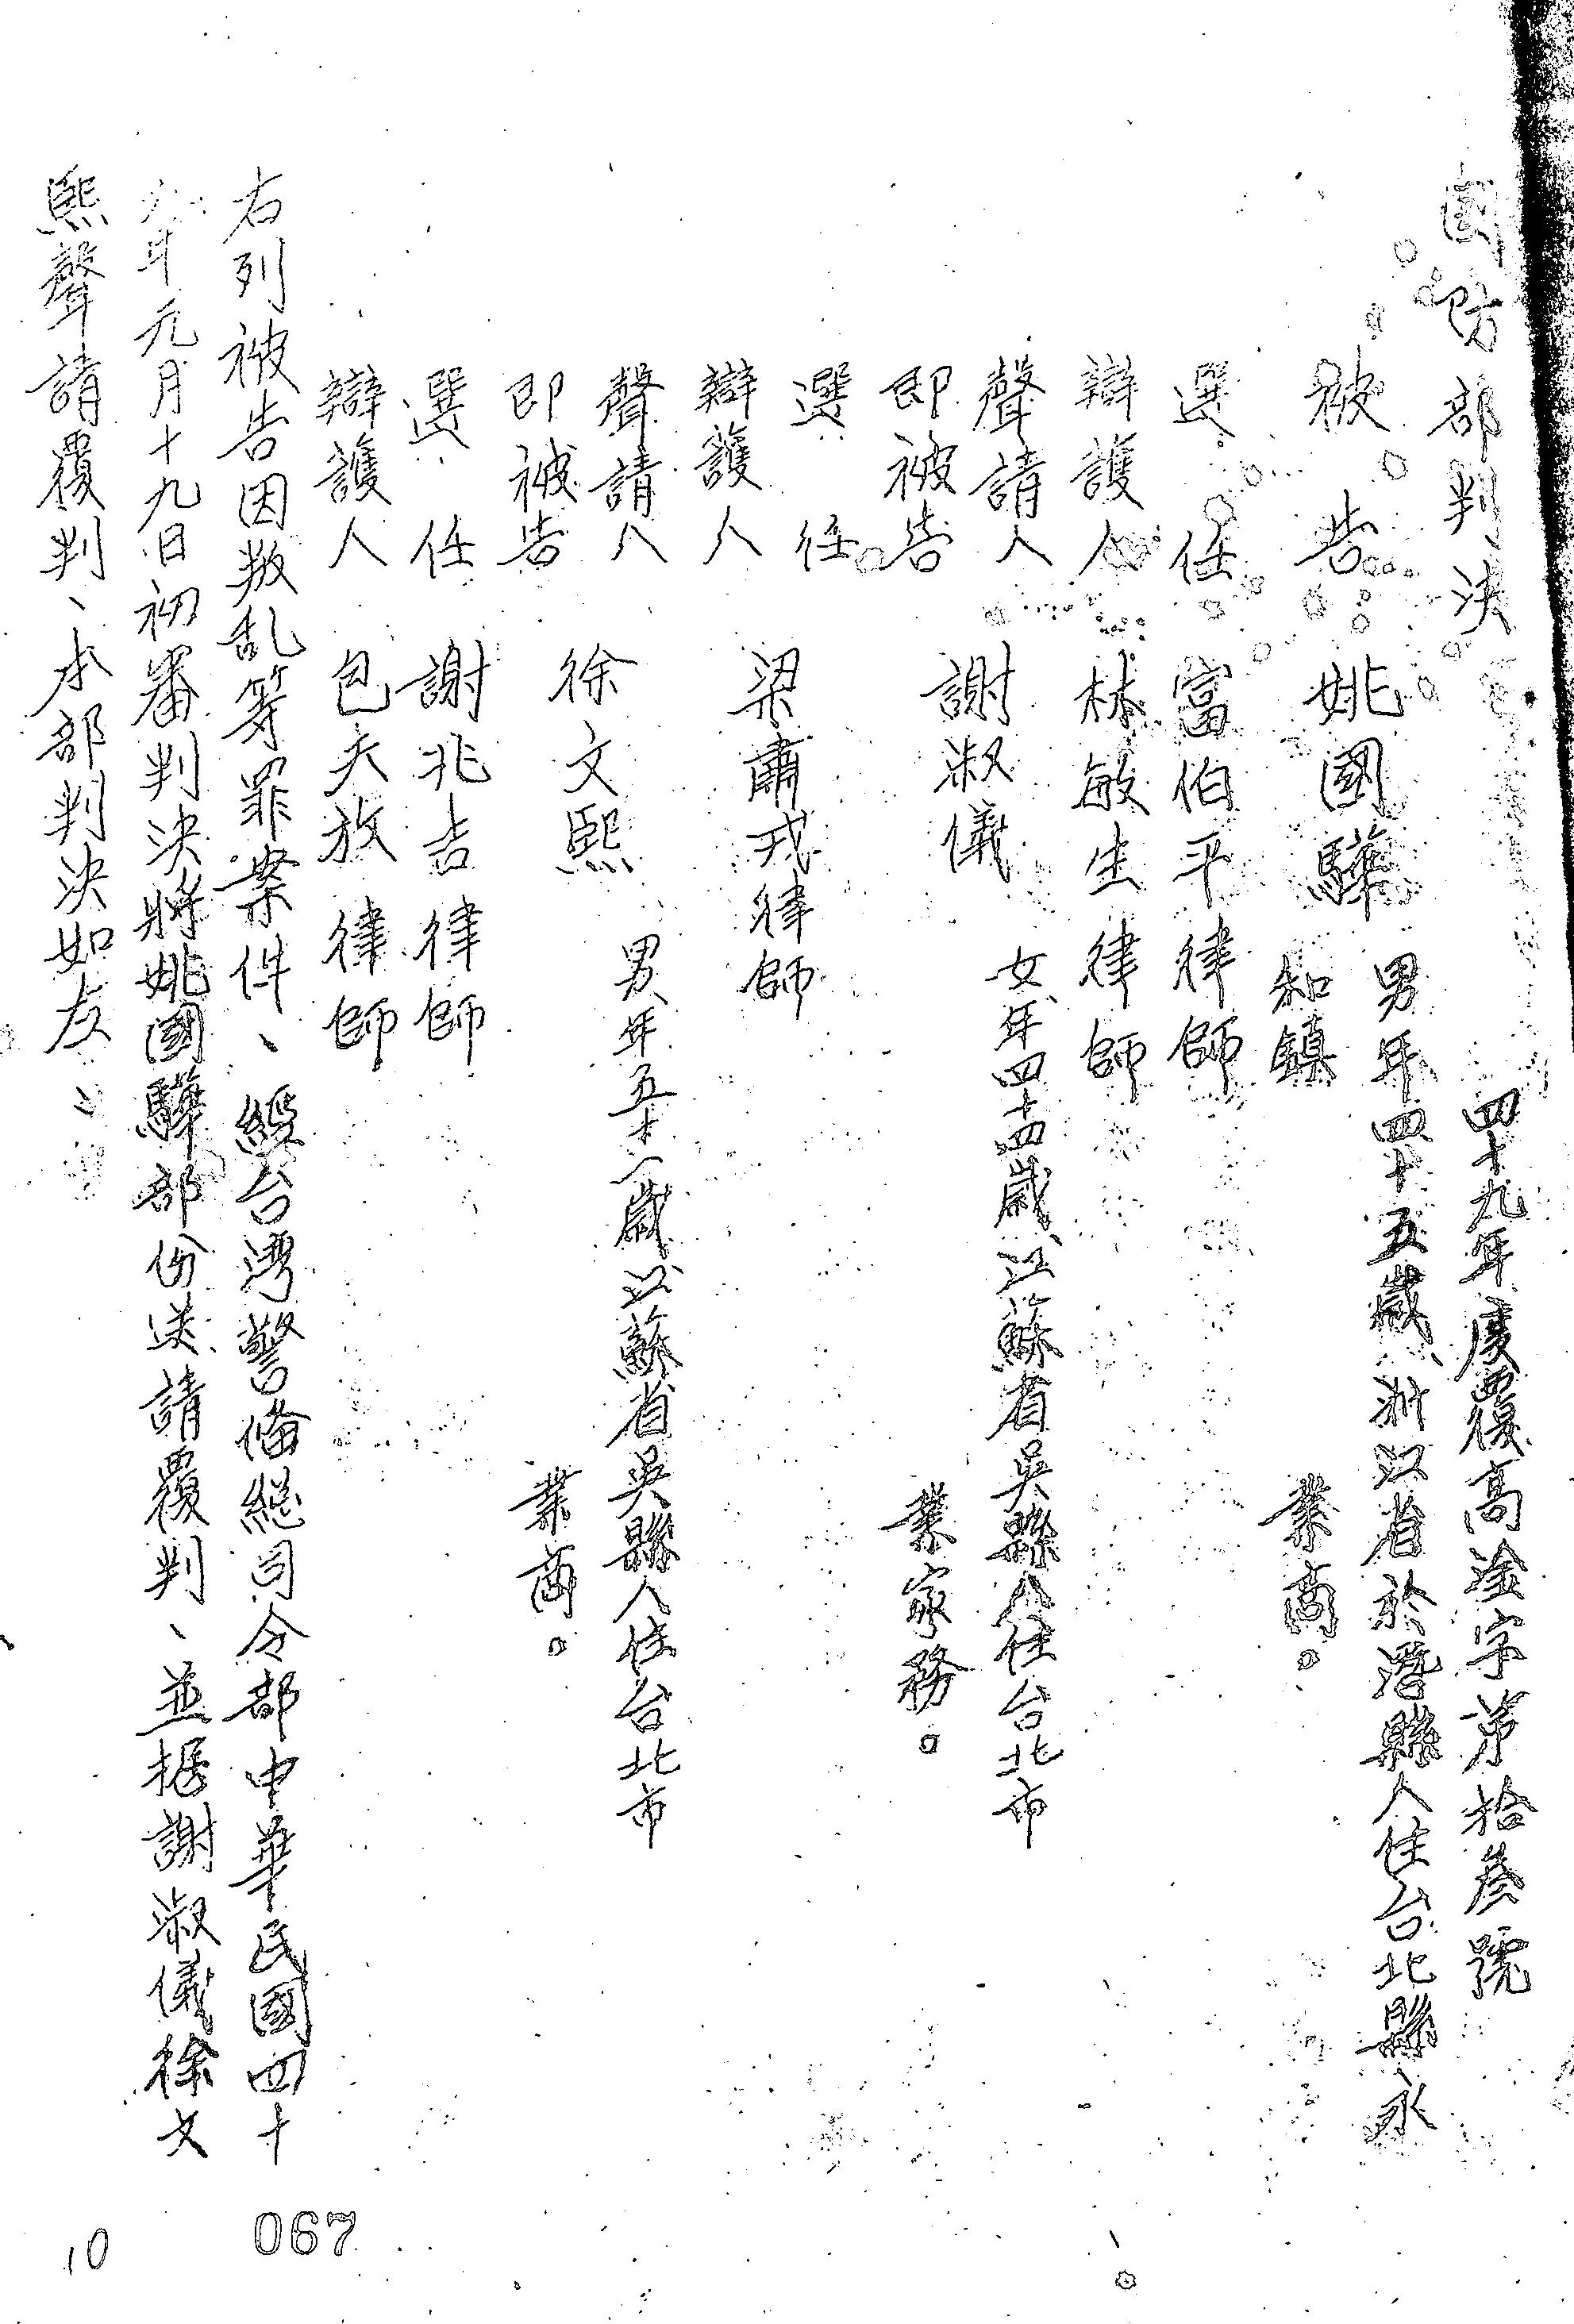 國防部判決
四十九年度覆高淦字第拾叁號
被告 姚國驊 男年四十五歲、浙江省於潛縣人住台北縣永
和鎮 業商。
選任 富伯平律師
辯護人 林敏生律師
聲請人
即被告 謝淑儀 女年四十四歲、江蘇省吳縣人住台北市
業家務。
選任
辯護人 梁肅戎律師
聲請人
即被告 徐文熙 男、年五十一歲江蘇省吳縣人住台北市
業商。
選任 謝兆吉律師
辯護人 包天放律師
右列被告因叛乱等罪案件、經台湾警備總司令部中華民國四十
年元月十九日初審判決將姚國驊部份送請覆判、並据謝淑儀徐文
熙聲請覆判、本部判決如左、
067
10